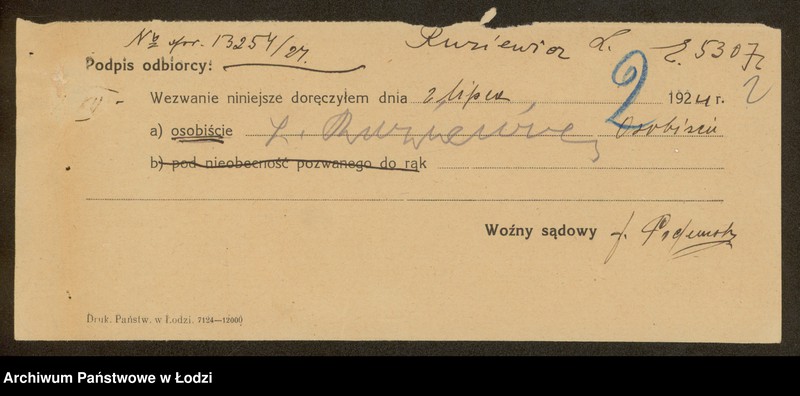 Nr spr. 13254/24. Kuziewicz L. E. 5307
Podpis odbiorcy:
2
Wezwanie niniejsze doręczyłem dnia 2 lipca 1924 r.
a) osobiście L. osobiście
b) pod nieobecność pozwanego do rąk
Woźny sądowy
Druk. Państw. w Łodzi. 7124—12000
Archiwum Państwowe w Łodzi